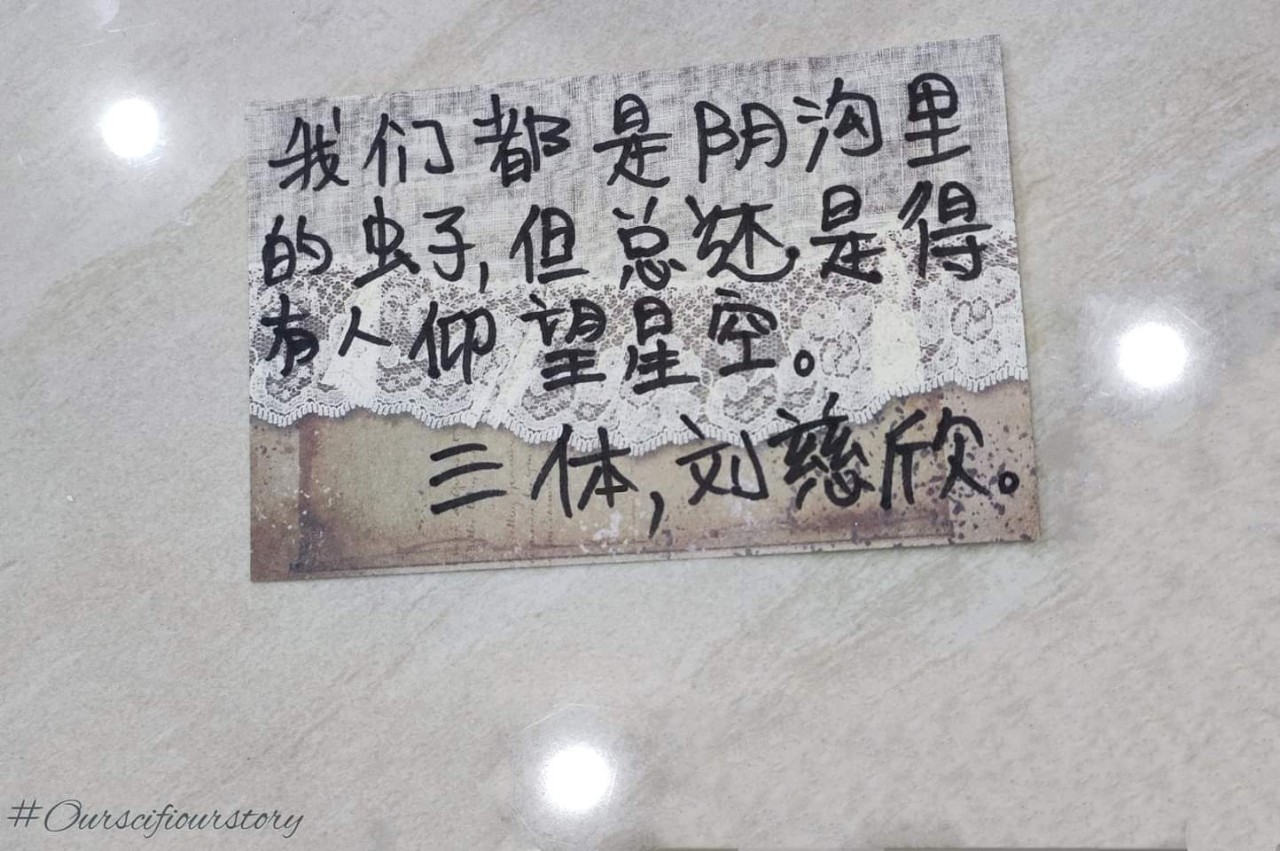 我们都是阴沟里
的虫子,但总还是得
有人仰望星空。
三体,刘慈欣。
#Ourscifiourstory